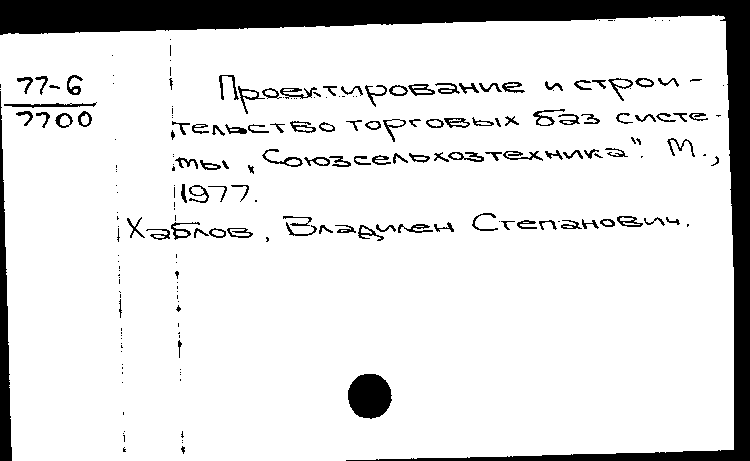 77-6
7700
Проектирование и строи-
тельство торговых баз систе-
мы „Союзсельхозтехника". М.,
1977.
Хаблов, Владилен Степанович.